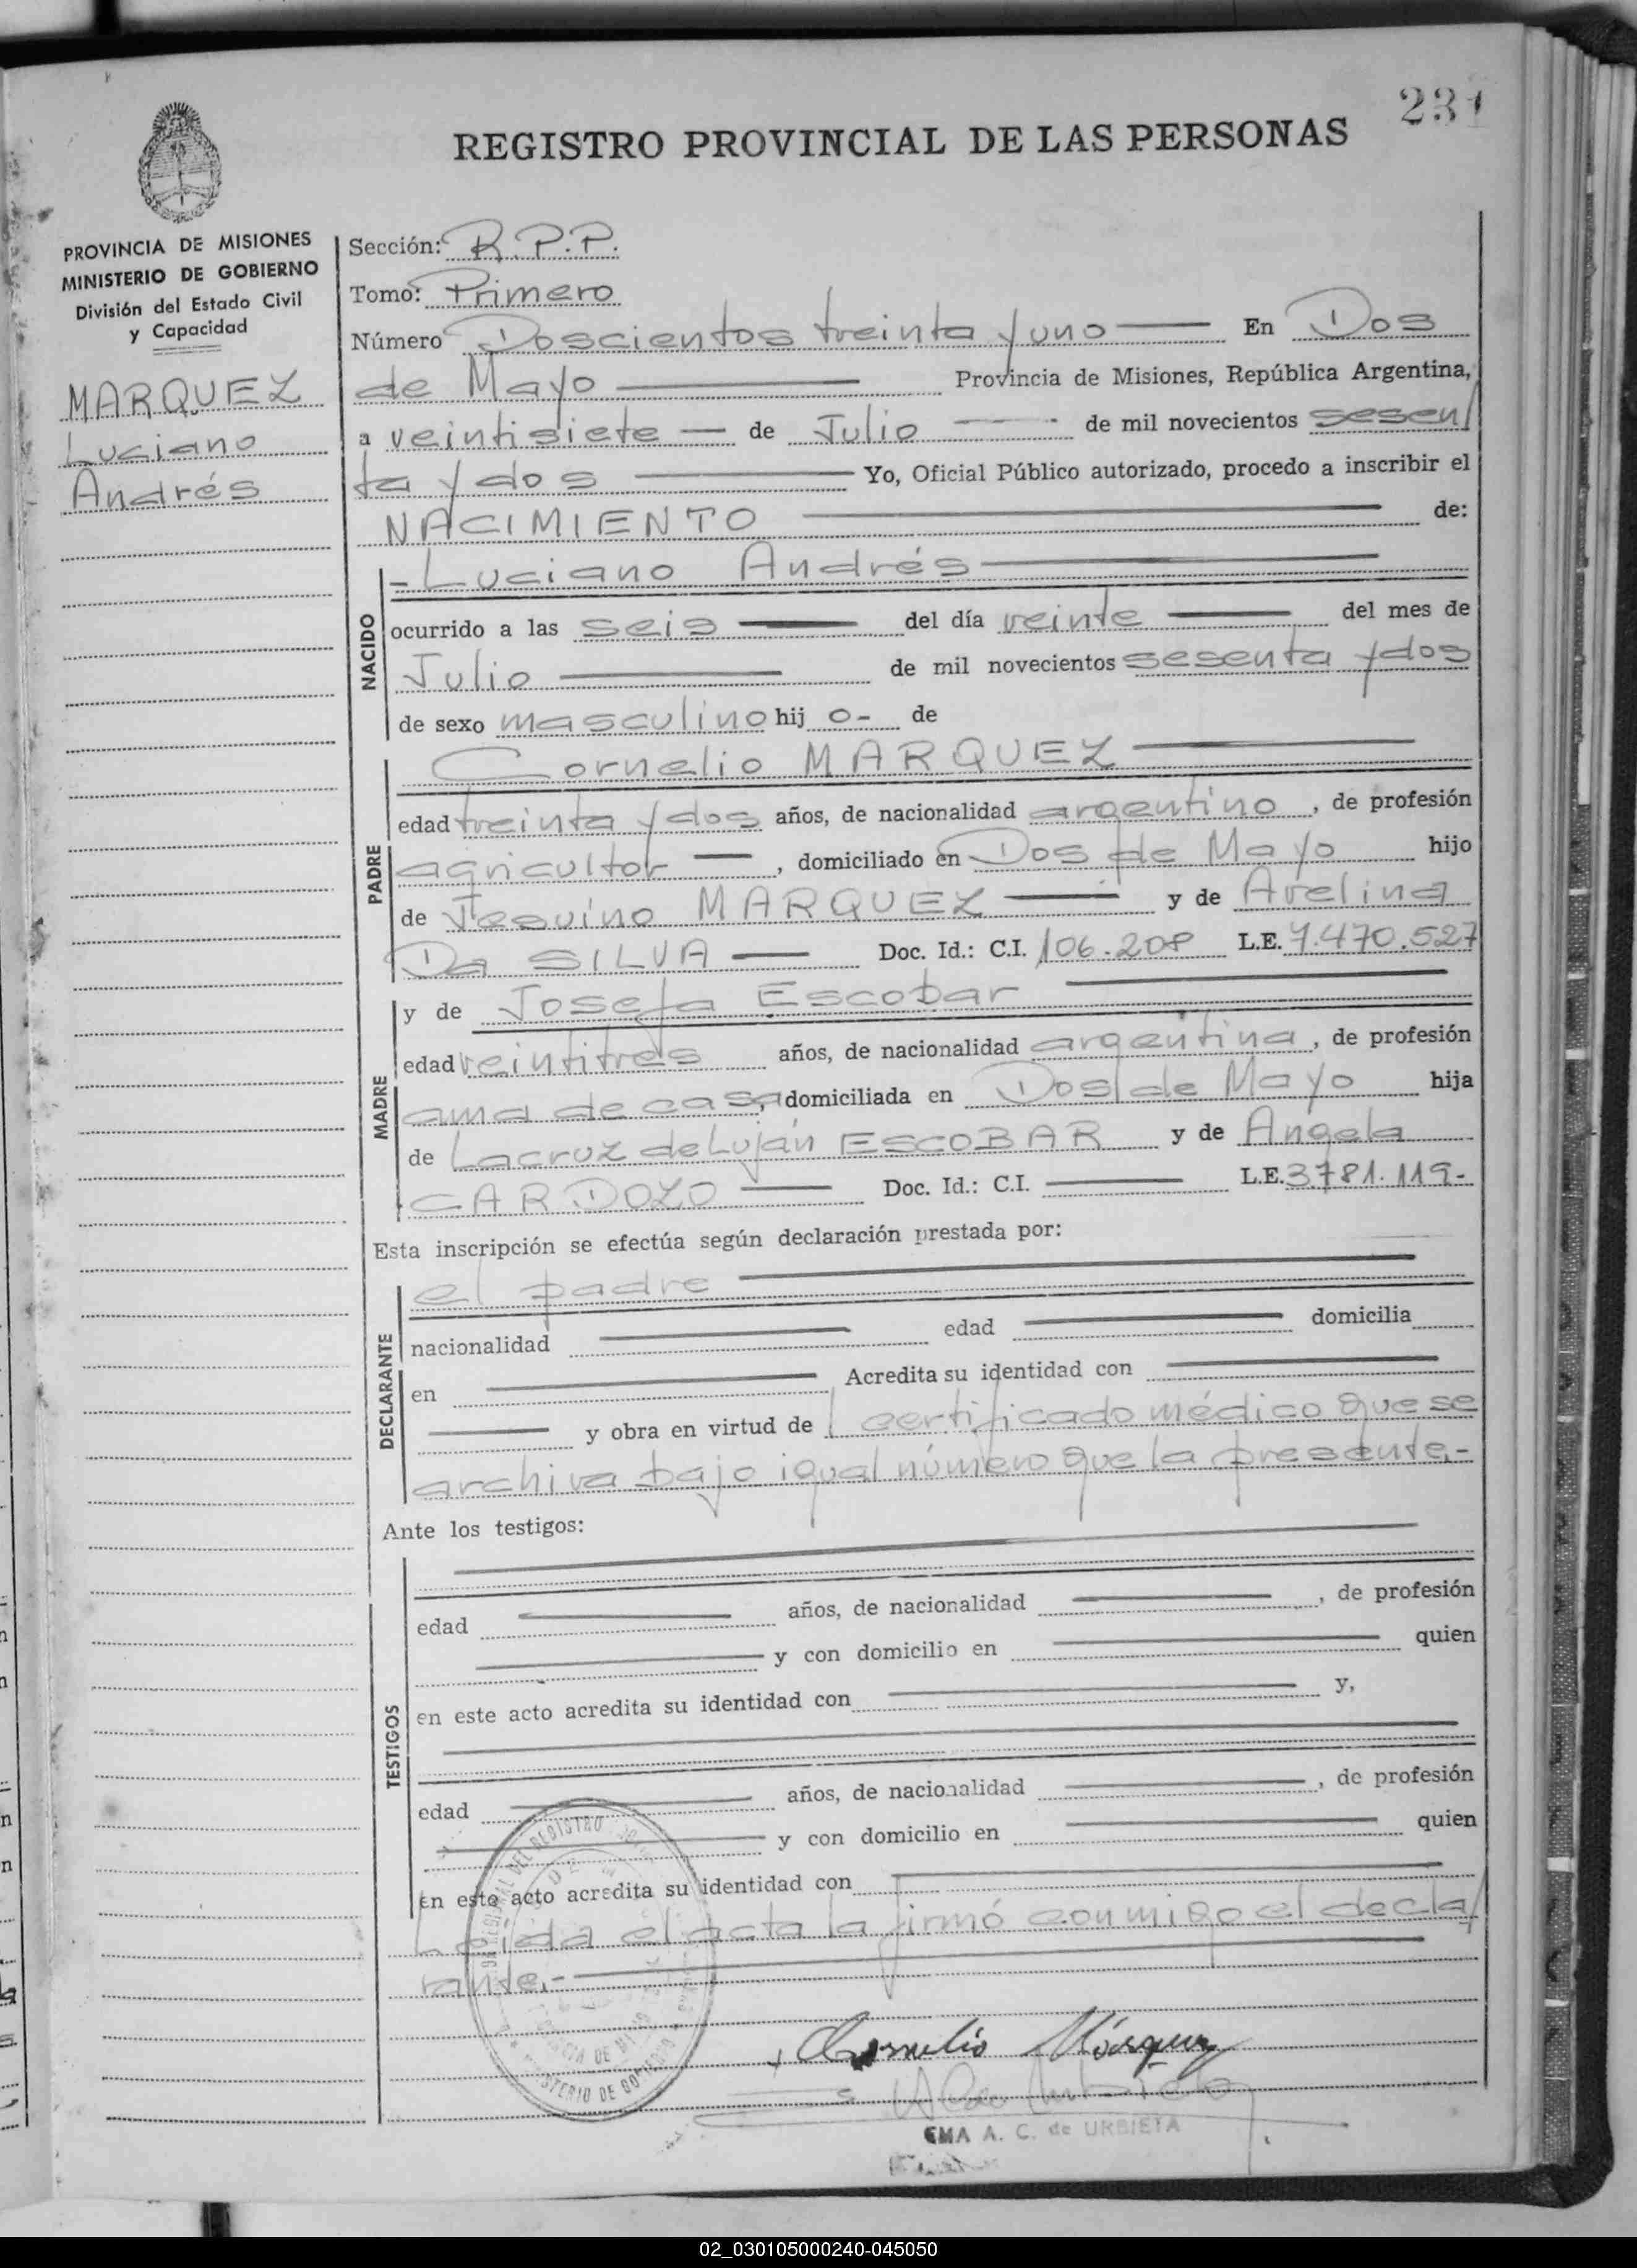 231
REGISTRO PROVINCIAL DE LAS PERSONAS
PROVINCIA DE MISIONES
MINISTERIO DE GOBIERNO
División del Estado Civil
y Capacidad
MARQUEZ
Luciano
Andrés
Sección: R.P.P.
Tomo: Primero
Número Doscientos treinta y uno En Dos
de Mayo Provincia de Misiones, República Argentina,
a veintisiete de Julio de mil novecientos sesen/
ta y dos Yo, Oficial Público autorizado, procedo a inscribir el
NACIMIENTO de:
NACIDO
-Luciano Andrés
ocurrido a las seis del día veinte del mes de
Julio de mil novecientos sesenta y dos
de sexo masculino hij o- de
PADRE
Cornelio MARQUEZ
edad treinta y dos años, de nacionalidad argentino, de profesión
agricultor, domiciliado en Dos de Mayo hijo
de MARQUEZ y de Avelina
Da SILVA Doc. Id.: C.I. 106.208 L.E. 7.470.527
MADRE
y de Josefa Escobar
edad veintitres años, de nacionalidad argentina, de profesión
ama de casa, domiciliada en Dos de Mayo hija
de Lacruz de Luján ESCOBAR y de Angela
CARDOZO Doc. Id.: C.I. L.E. 3.781.119-
Esta inscripción se efectúa según declaración prestada por:
DECLARANTE
el padre
nacionalidad edad domicilia
en Acredita su identidad con
y obra en virtud de certificado médico que se
archiva bajo igual número que la presente.-
Ante los testigos:
TESTIGOS
edad años, de nacionalidad , de profesión
y con domicilio en quien
en este acto acredita su identidad con y,
edad años, de nacionalidad , de profesión
y con domicilio en quien
en este acto acredita su identidad con
Leída el acta la firmó conmigo el decla/
rante.-
Cornelio Márquez
EMA A. C. de URBIETA
02_030105000240-045050